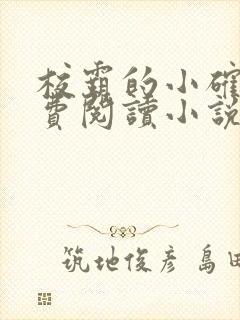 校霸的小確
費閱讀小說
筑地俊彥 島田